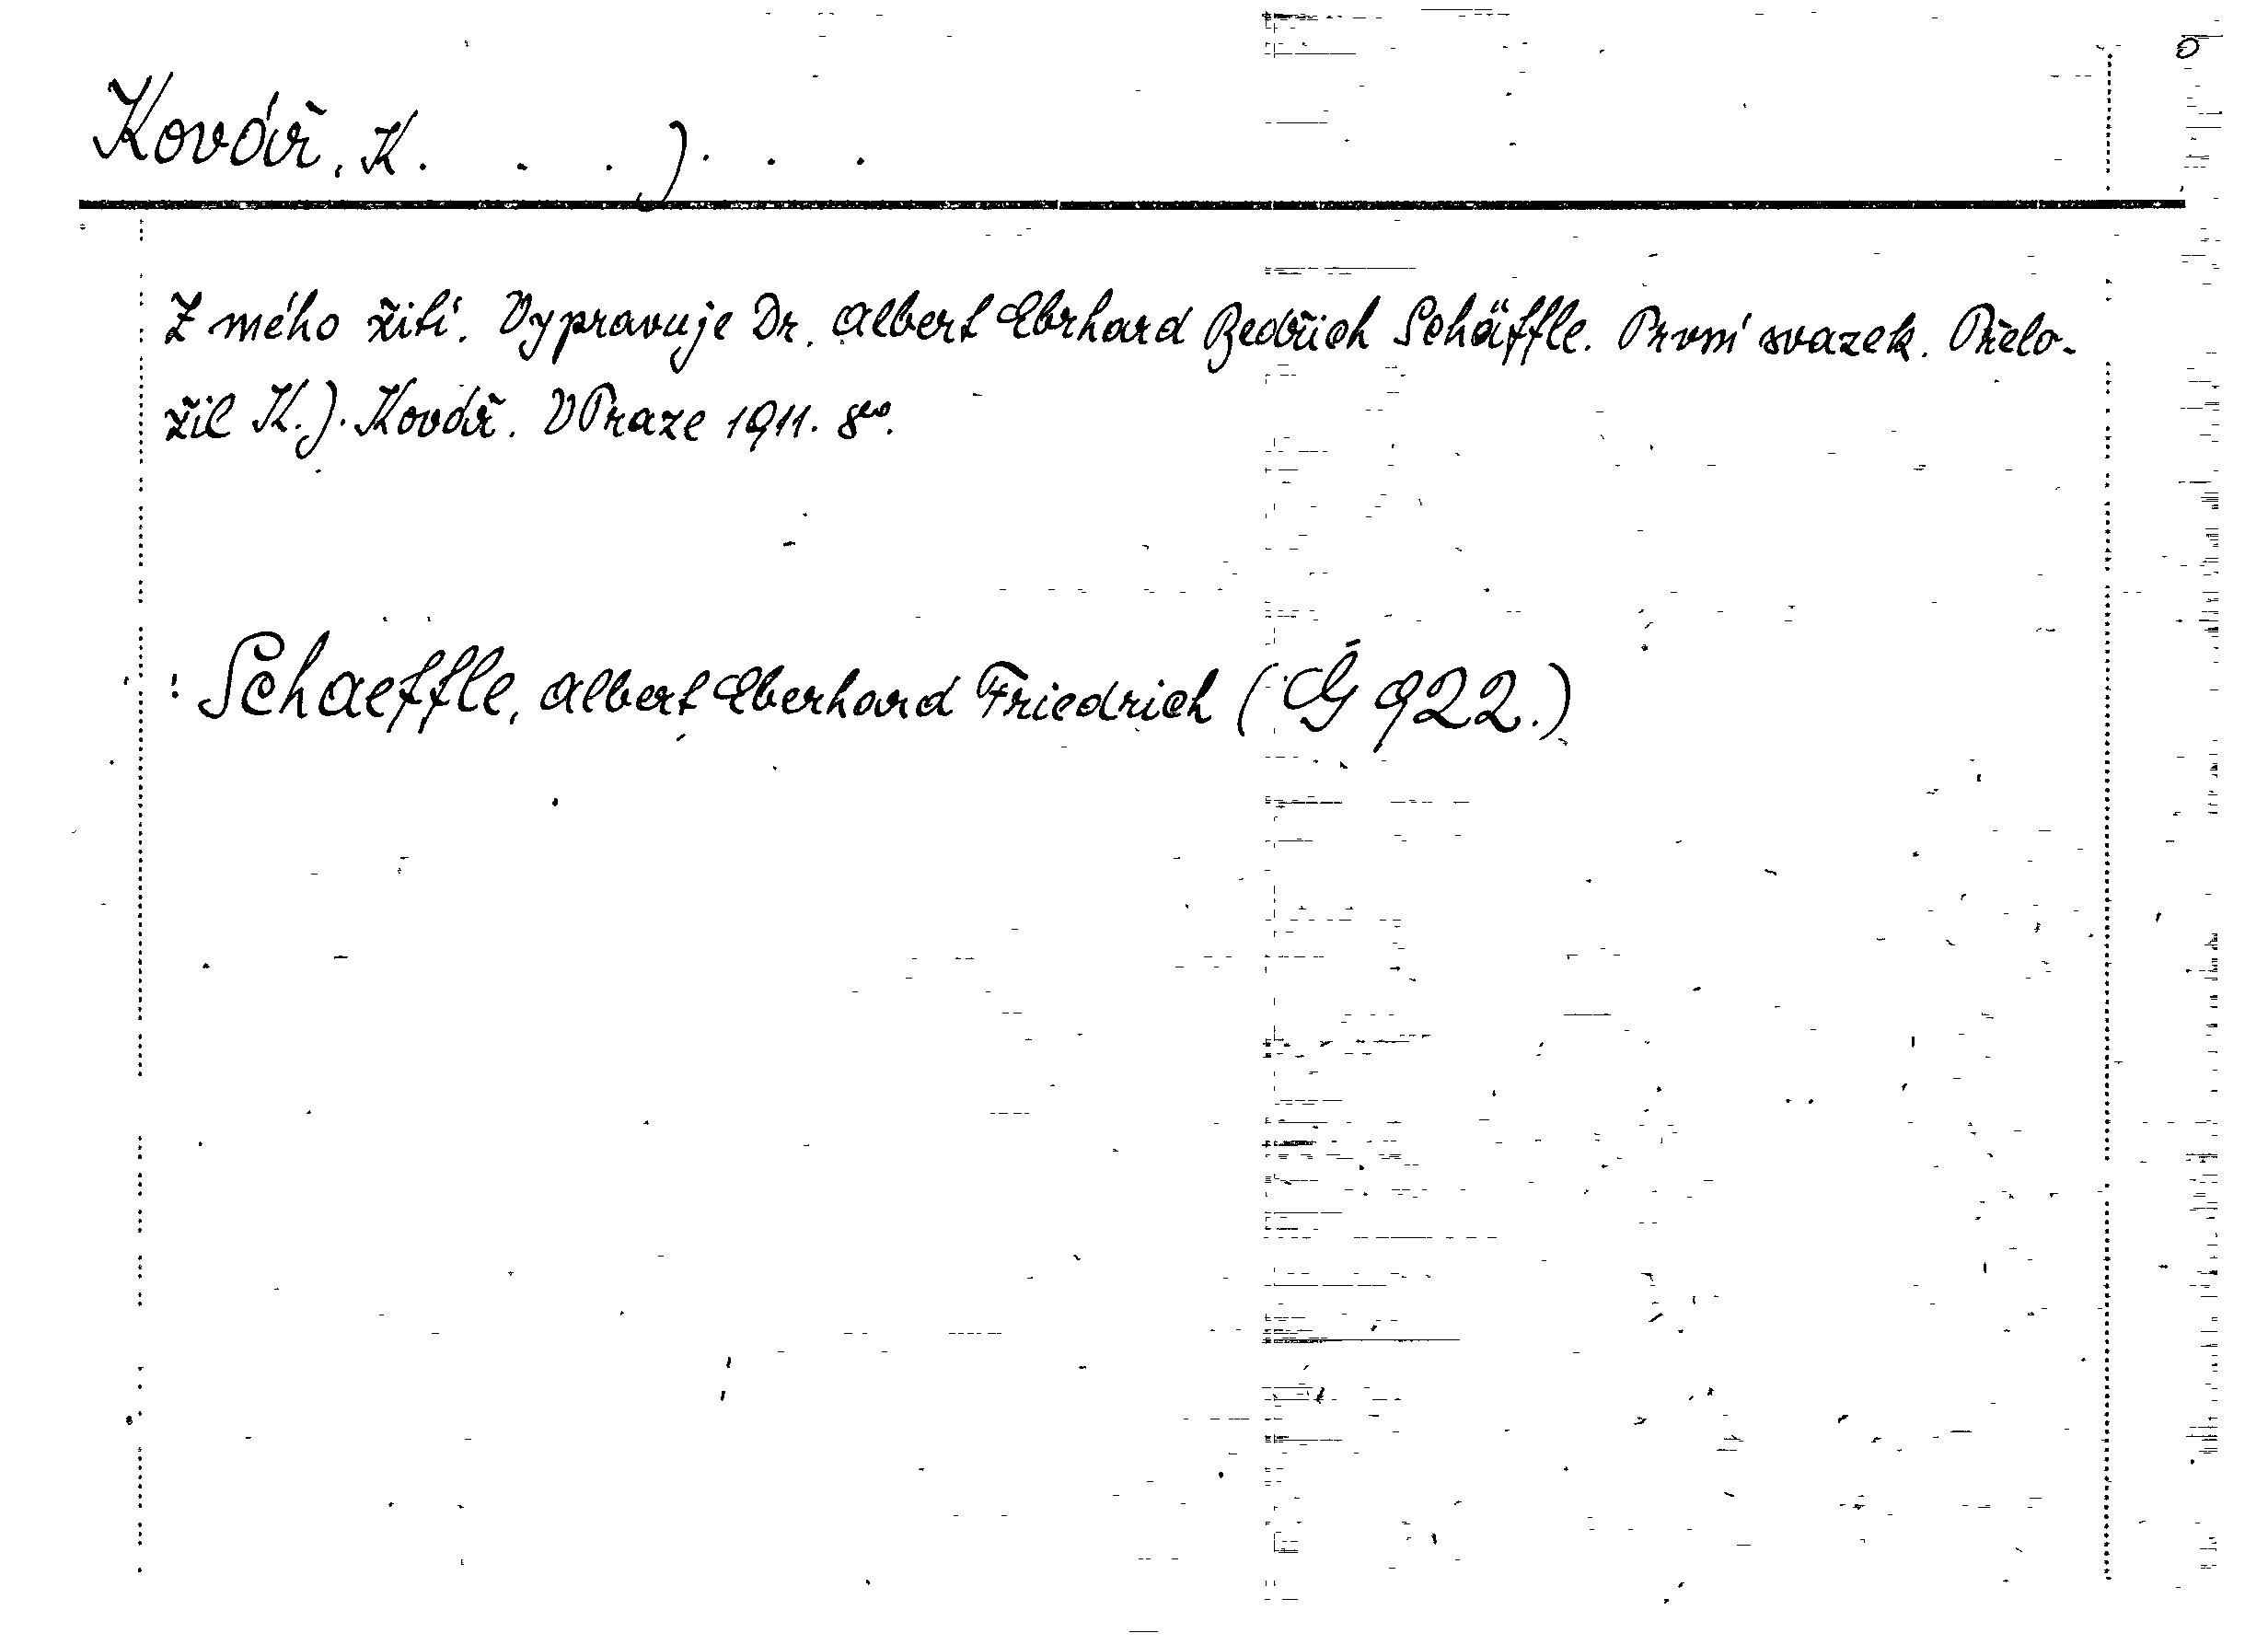 Kovář, K. . . J. . .
Z mého žití. Vypravuje Dr. Albert Ebrhard Bedřich Schäffle. První svazek. Přelo-
žil K. J. Kovář. V Praze 1911. 8vo.
: Schaeffle, Albert Eberhard Friedrich (G 922.)